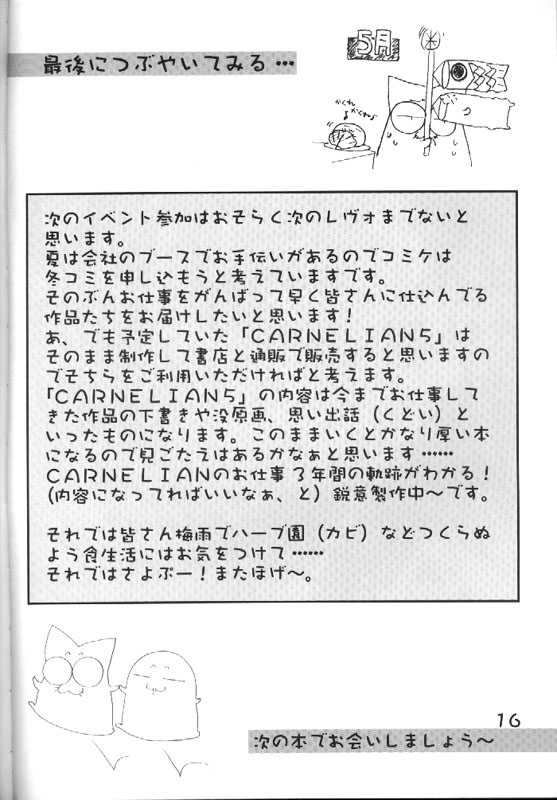 最後につぶやいてみる…
5月
かくれ
♪かくれ♪
次のイベント参加はおそらく次のレヴォまでないと
思います。
夏は会社のブースでお手伝いがあるのでコミケは
冬コミを申し込もうと考えていますです。
そのぶんお仕事をがんばって早く皆さんに仕込んでる
作品たちをお届けしたいと思います！
あ、でも予定していた「CARNELIAN5」は
そのまま制作して書店と通販で販売すると思いますの
でそちらをご利用いただければと考えます。
「CARNELIAN5」の内容は今までお仕事して
きた作品の下書きや没原画、思い出話（くどい）と
いったものになります。このままいくとかなり厚い本
になるので見ごたえはあるかなぁと思います……
CARNELIANのお仕事３年間の軌跡がわかる！
(内容になってればいいなぁ、と）鋭意製作中～です。
それでは皆さん梅雨でハーブ園（カビ）などつくらぬ
よう食生活にはお気をつけて……
それではさよぷー！またほげ～。
16
次の本でお会いしましょう～